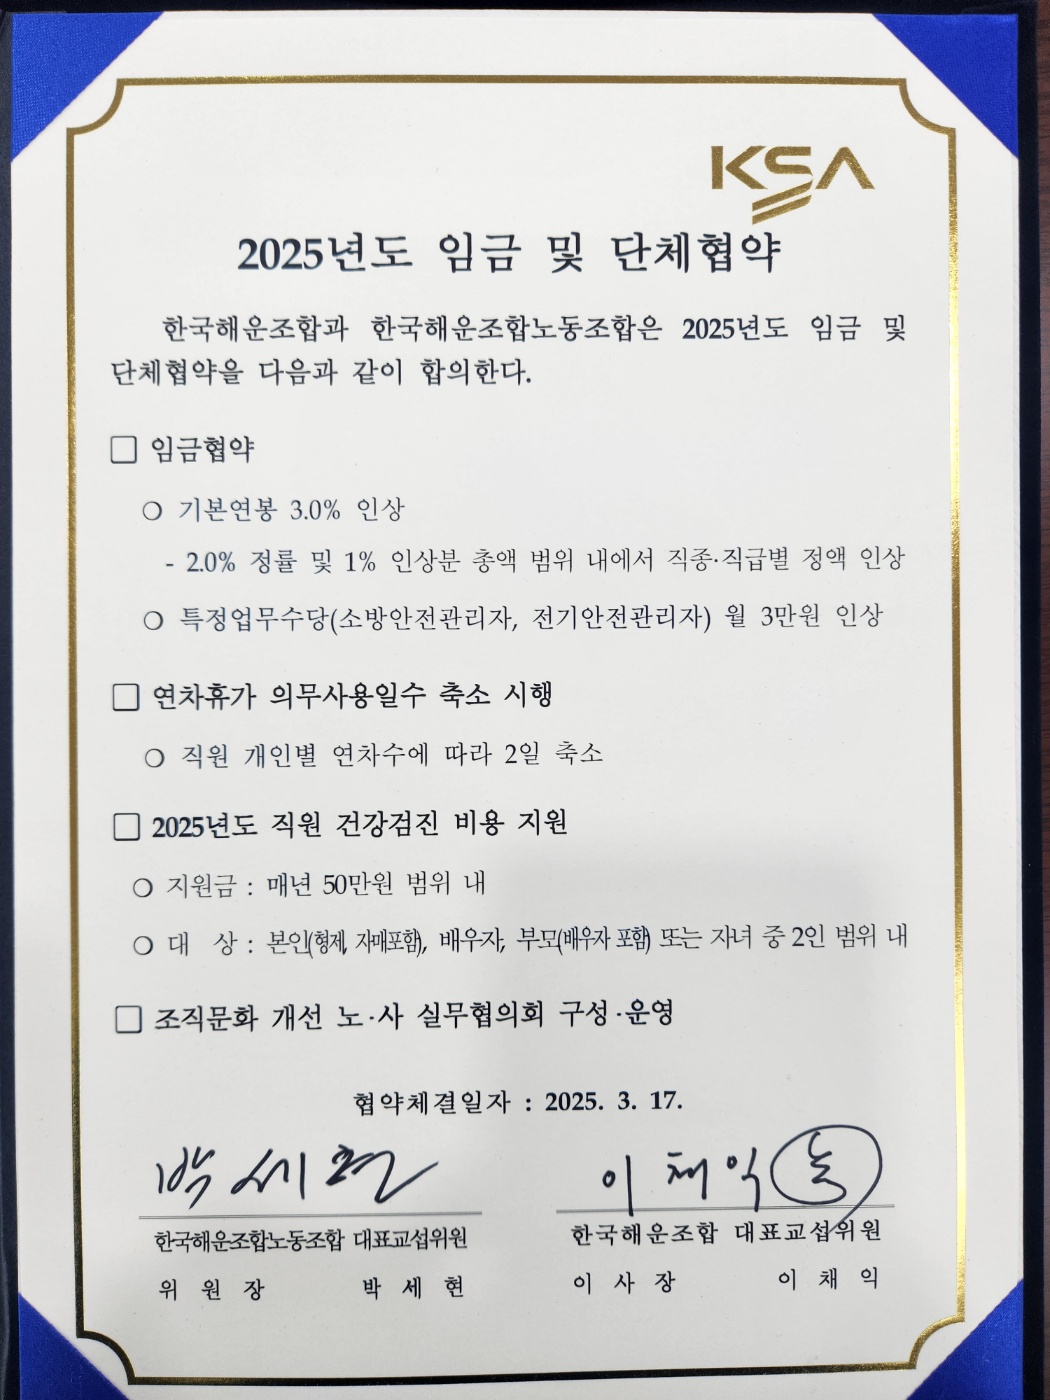 KSA
2025년도 임금 및 단체협약
한국해운조합과 한국해운조합노동조합은 2025년도 임금 및
단체협약을 다음과 같이 합의한다.
□ 임금협약
○ 기본연봉 3.0% 인상
- 2.0% 정률 및 1% 인상분 총액 범위 내에서 직종·직급별 정액 인상
○ 특정업무수당(소방안전관리자, 전기안전관리자) 월 3만원 인상
□ 연차휴가 의무사용일수 축소 시행
○ 직원 개인별 연차수에 따라 2일 축소
□ 2025년도 직원 건강검진 비용 지원
○ 지원금 : 매년 50만원 범위 내
○ 대 상 : 본인(형제, 자매포함), 배우자, 부모(배우자 포함) 또는 자녀 중 2인 범위 내
□ 조직문화 개선 노·사 실무협의회 구성·운영
협약체결일자 : 2025. 3. 17.
박세현 이채익
한국해운조합노동조합 대표교섭위원 한국해운조합 대표교섭위원
위 원 장 박 세 현 이 사 장 이 채 익